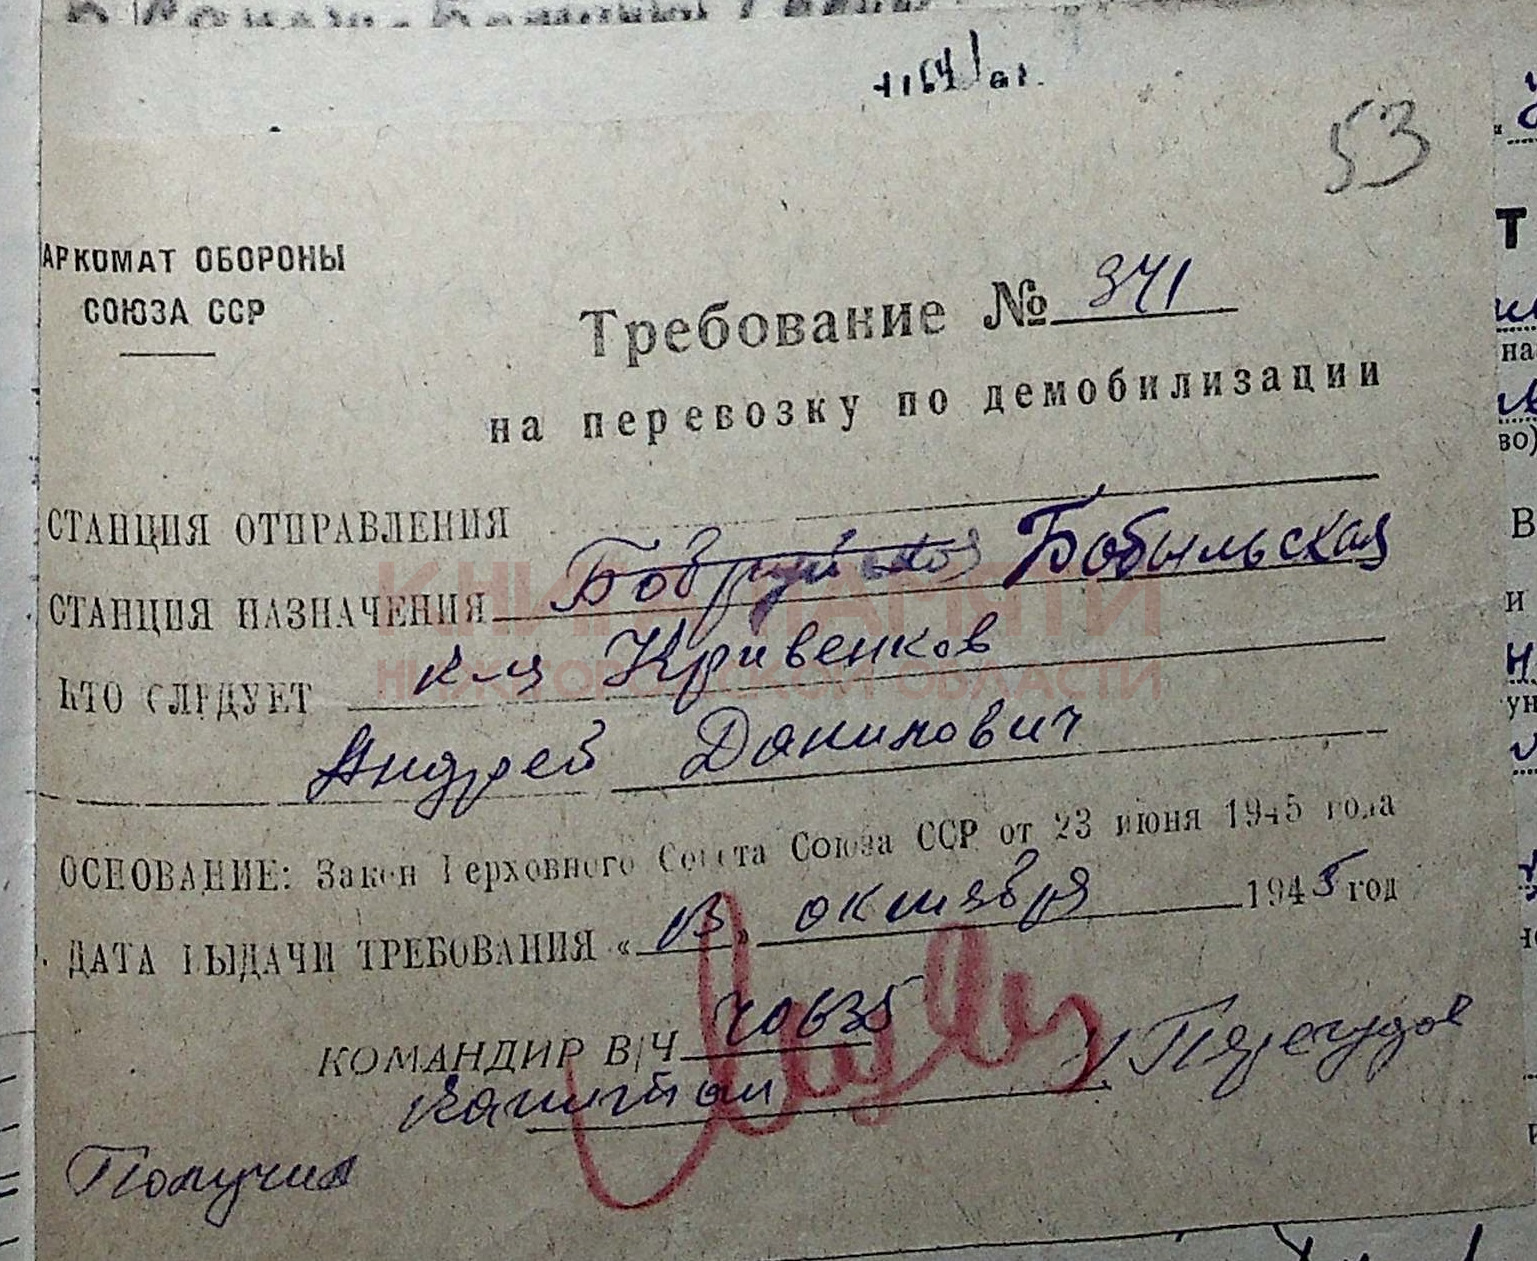 53
АРКОМАТ ОБОРОНЫ
СОЮЗА ССР
Требование № 341
на перевозку по демобилизации
СТАНЦИЯ ОТПРАВЛЕНИЯ
СТАНЦИЯ НАЗНАЧЕНИЯ Бобруйская Бобыльская
КНИГА ПАМЯТИ
НИЖЕГОРОДСКОЙ ОБЛАСТИ
КТО СЛЕДУЕТ к-ц Кривенков
Андрей Данилович
ОСНОВАНИЕ: Закон Верховного Совета Союза ССР от 23 июня 1945 года
ДАТА ВЫДАЧИ ТРЕБОВАНИЯ « 13 » октября 1945 год
КОМАНДИР В/Ч 40635
Капитан
Получил